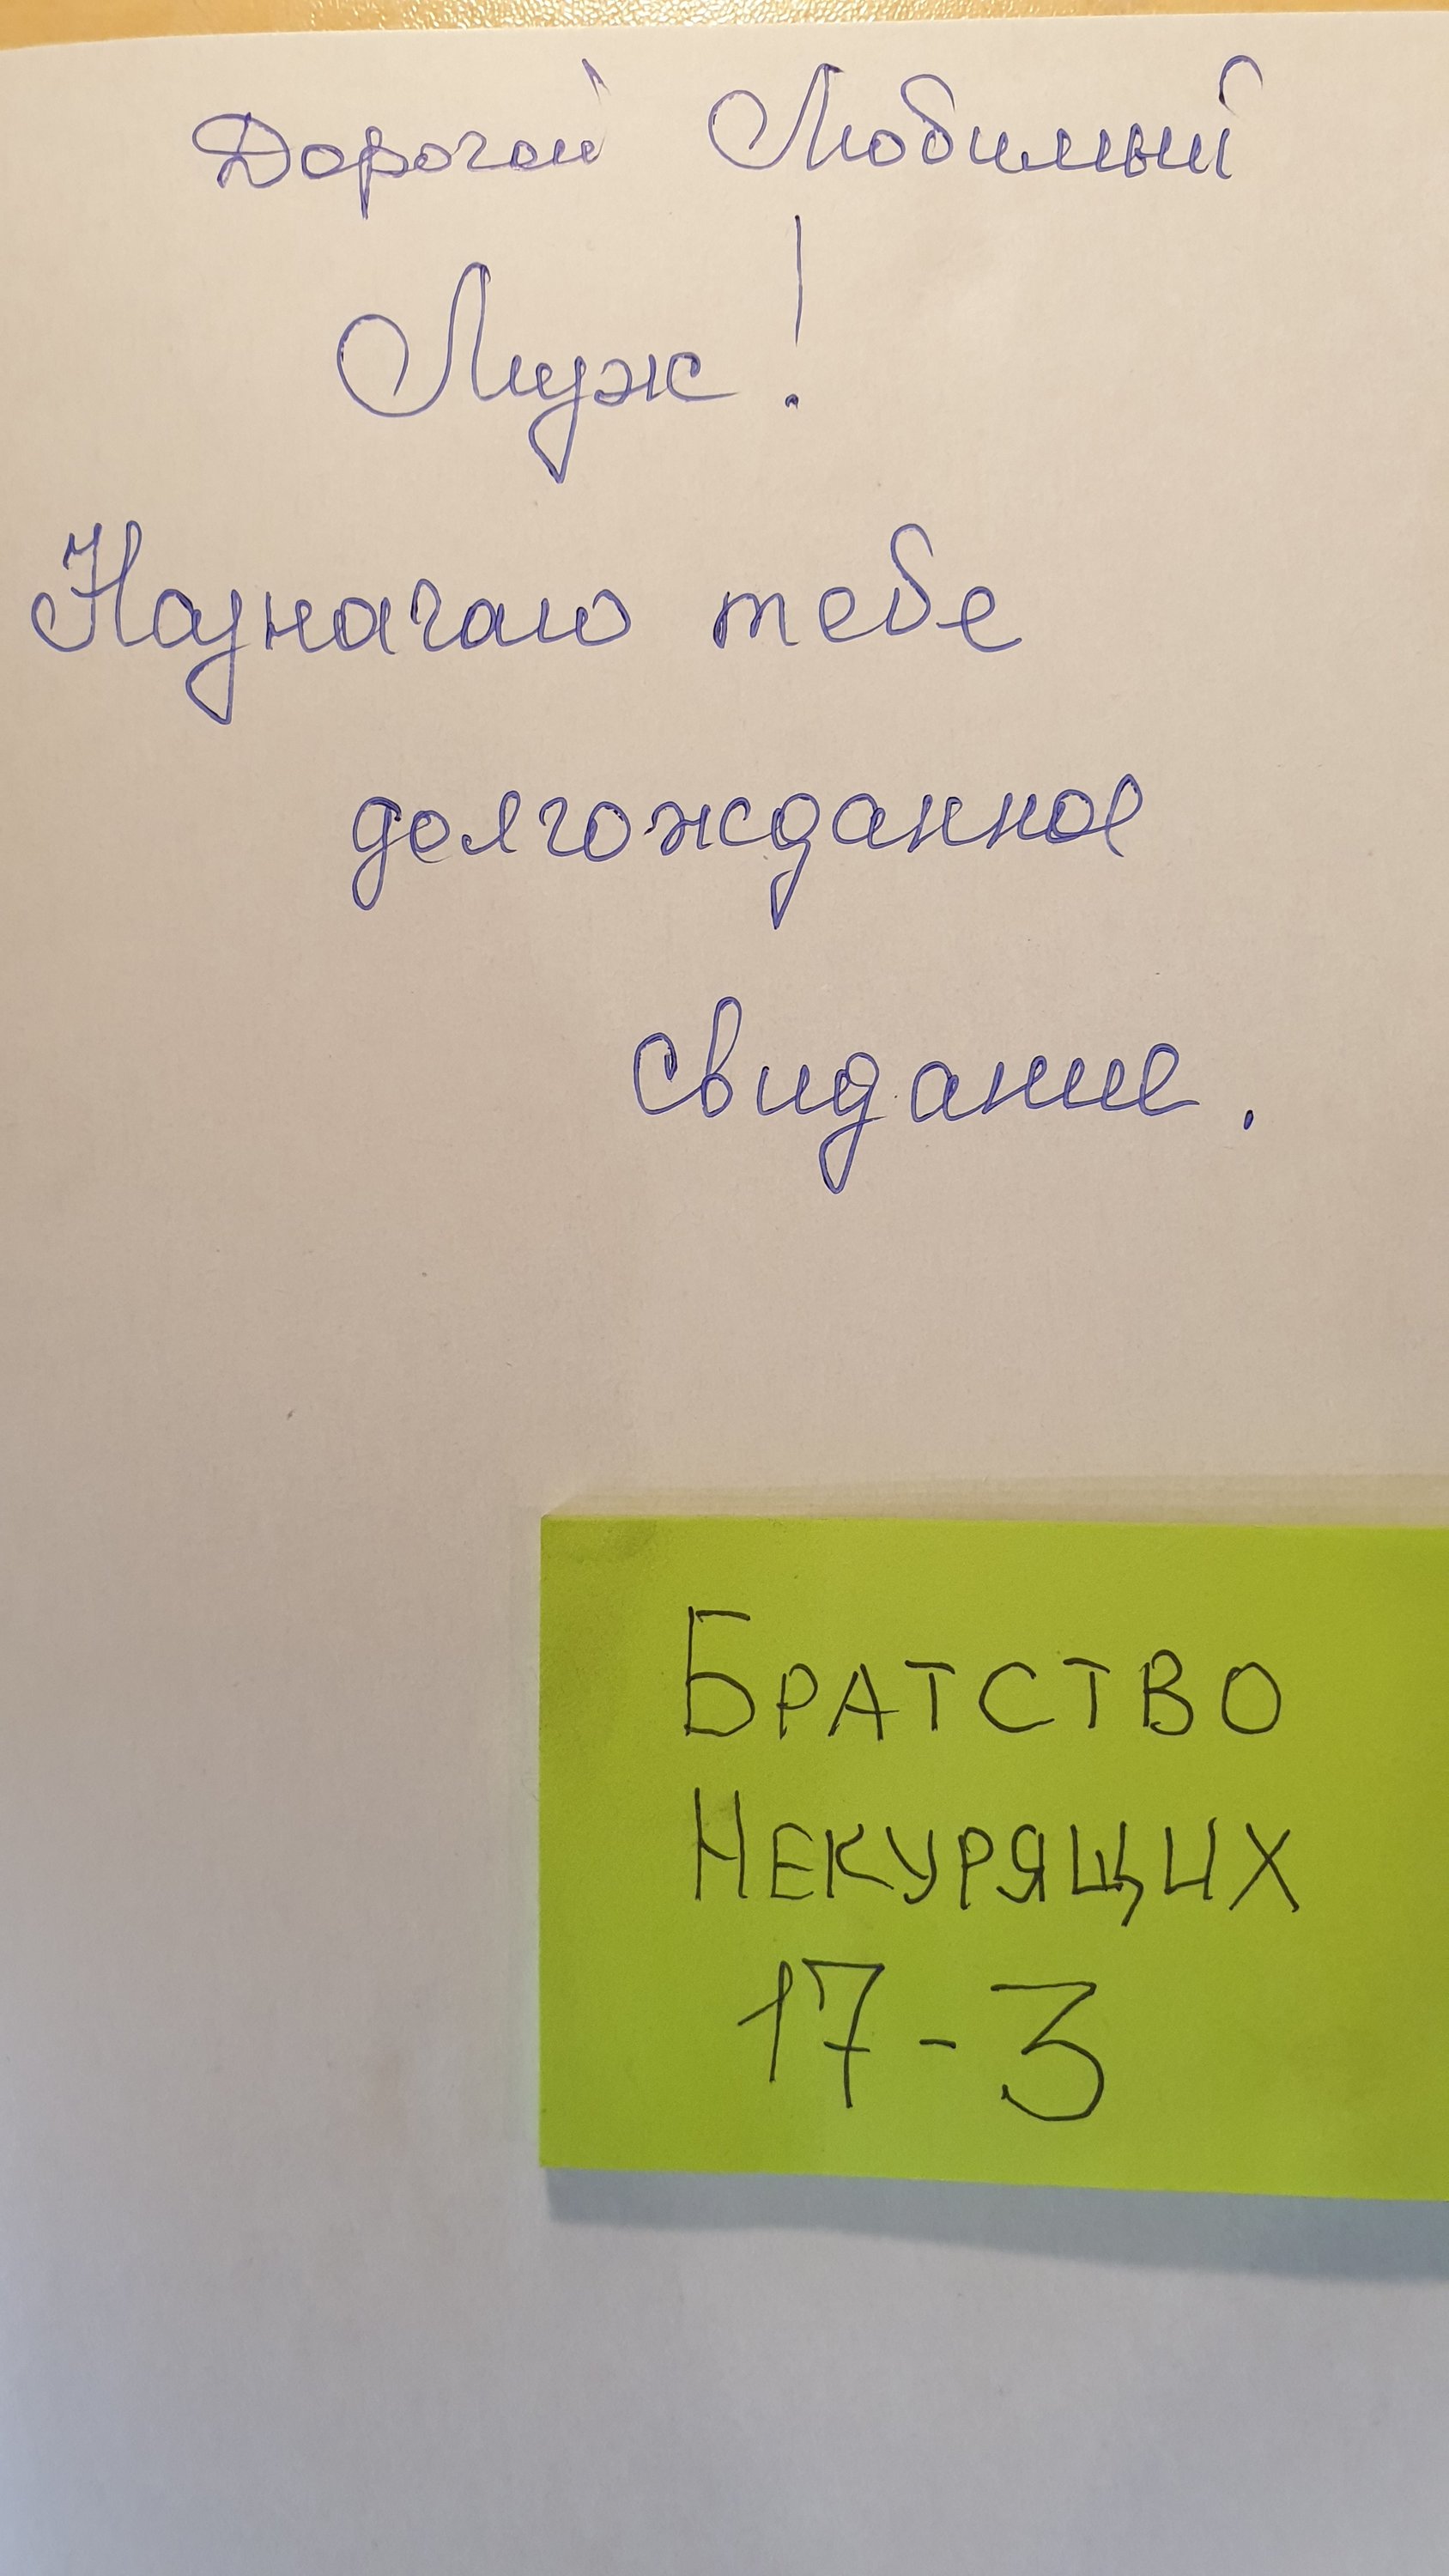 Дорогой Любимый
Муж!
Назначаю тебе
долгожданное
свидание.
БРАТСТВО
НЕКУРЯЩИХ
17-3